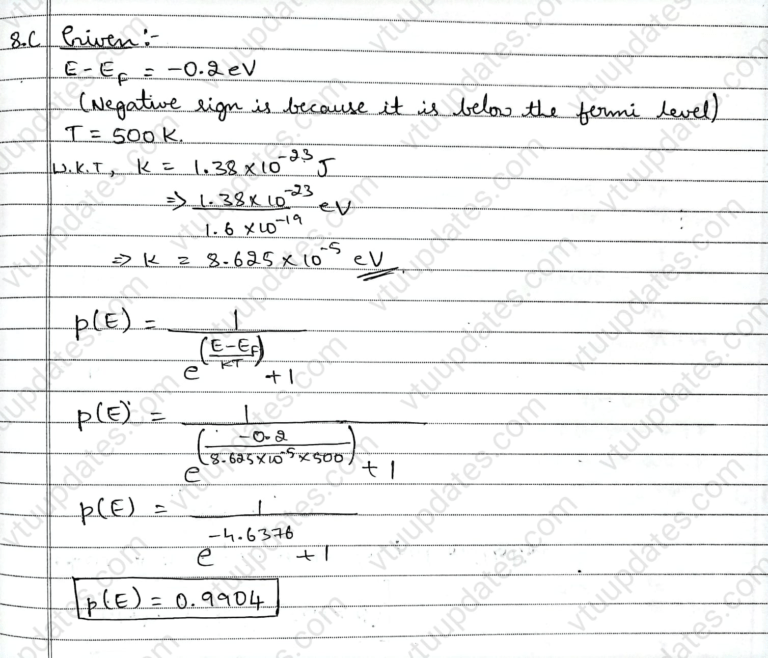 8.C Given:-
E-E_F = -0.2eV
(Negative sign is because it is below the fermi level)
T = 500K.
W.K.T, K = 1.38×10^-23 J
=> 1.38×10^-23 / 1.6×10^-19 eV
=> K = 8.625×10^-5 eV
p(E) = 1 / e^((E-E_F)/KT) +1
p(E) = 1 / e^(-0.2/(8.625×10^-5×500)) +1
p(E) = 1 / e^-4.6376 +1
p(E) = 0.9904
vtuupdates.com